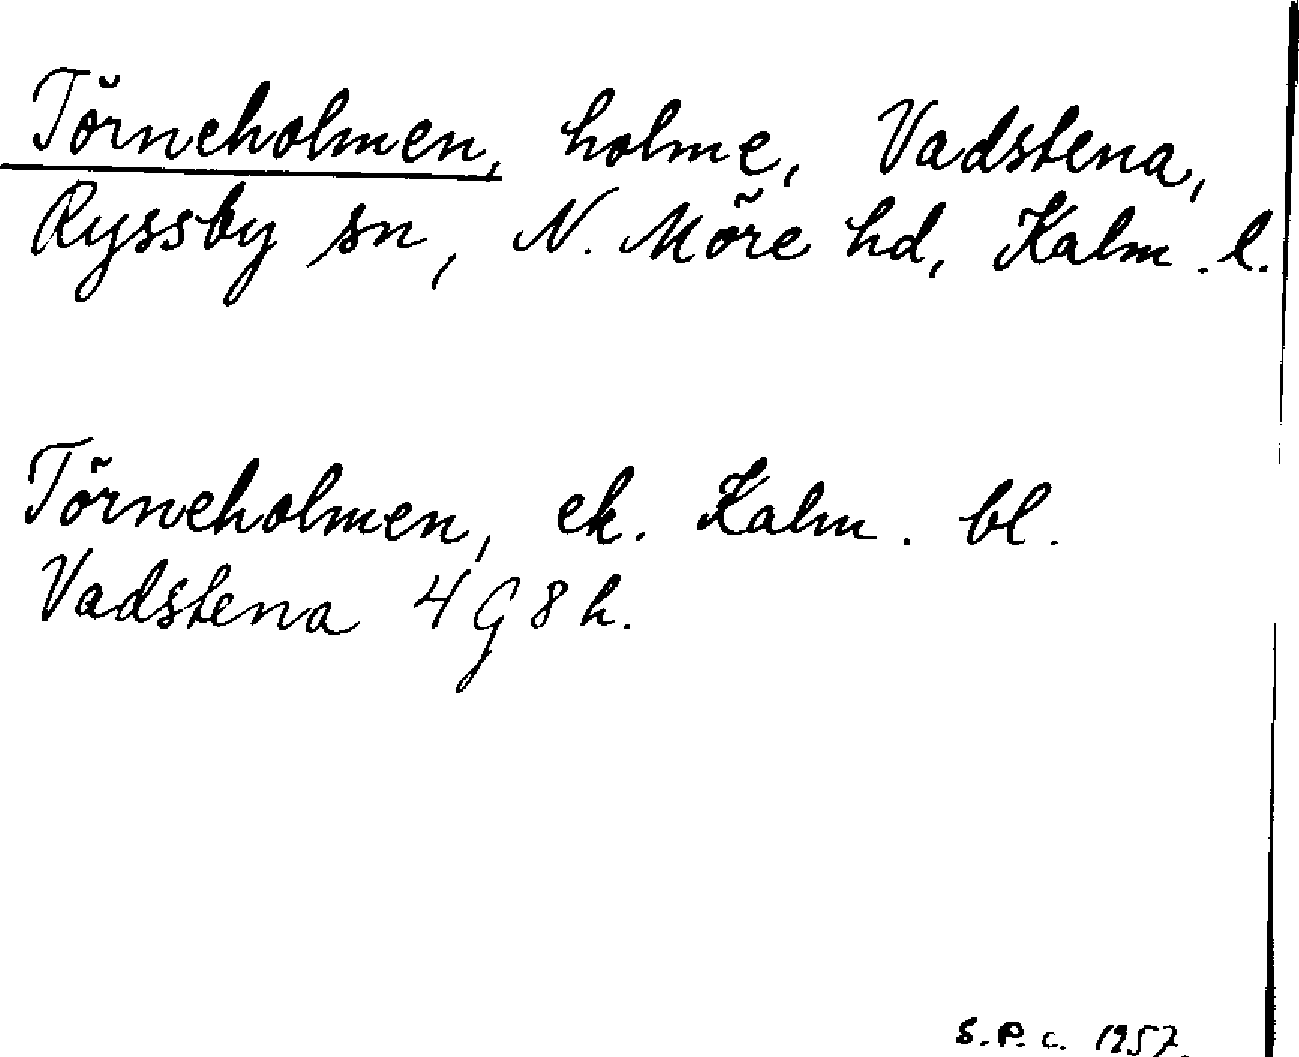 Törneholmen, holme, Vadstena,
Ryssby sn, N. Möre hd, Kalm. l.
Törneholmen, ek. Kalm. bl.
Vadstena 4 G 8 h.
S.P.c. 1957.